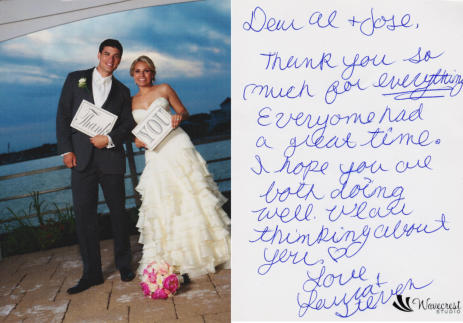 Thank
YOU
Dear Al + Jose,
Thank you so
much for everything
Everyone had
a great time.
I hope you are
both doing
well. We are
thinking about
you. ♡
Love,
Laura +
Steven
Wavecrest
STUDIO